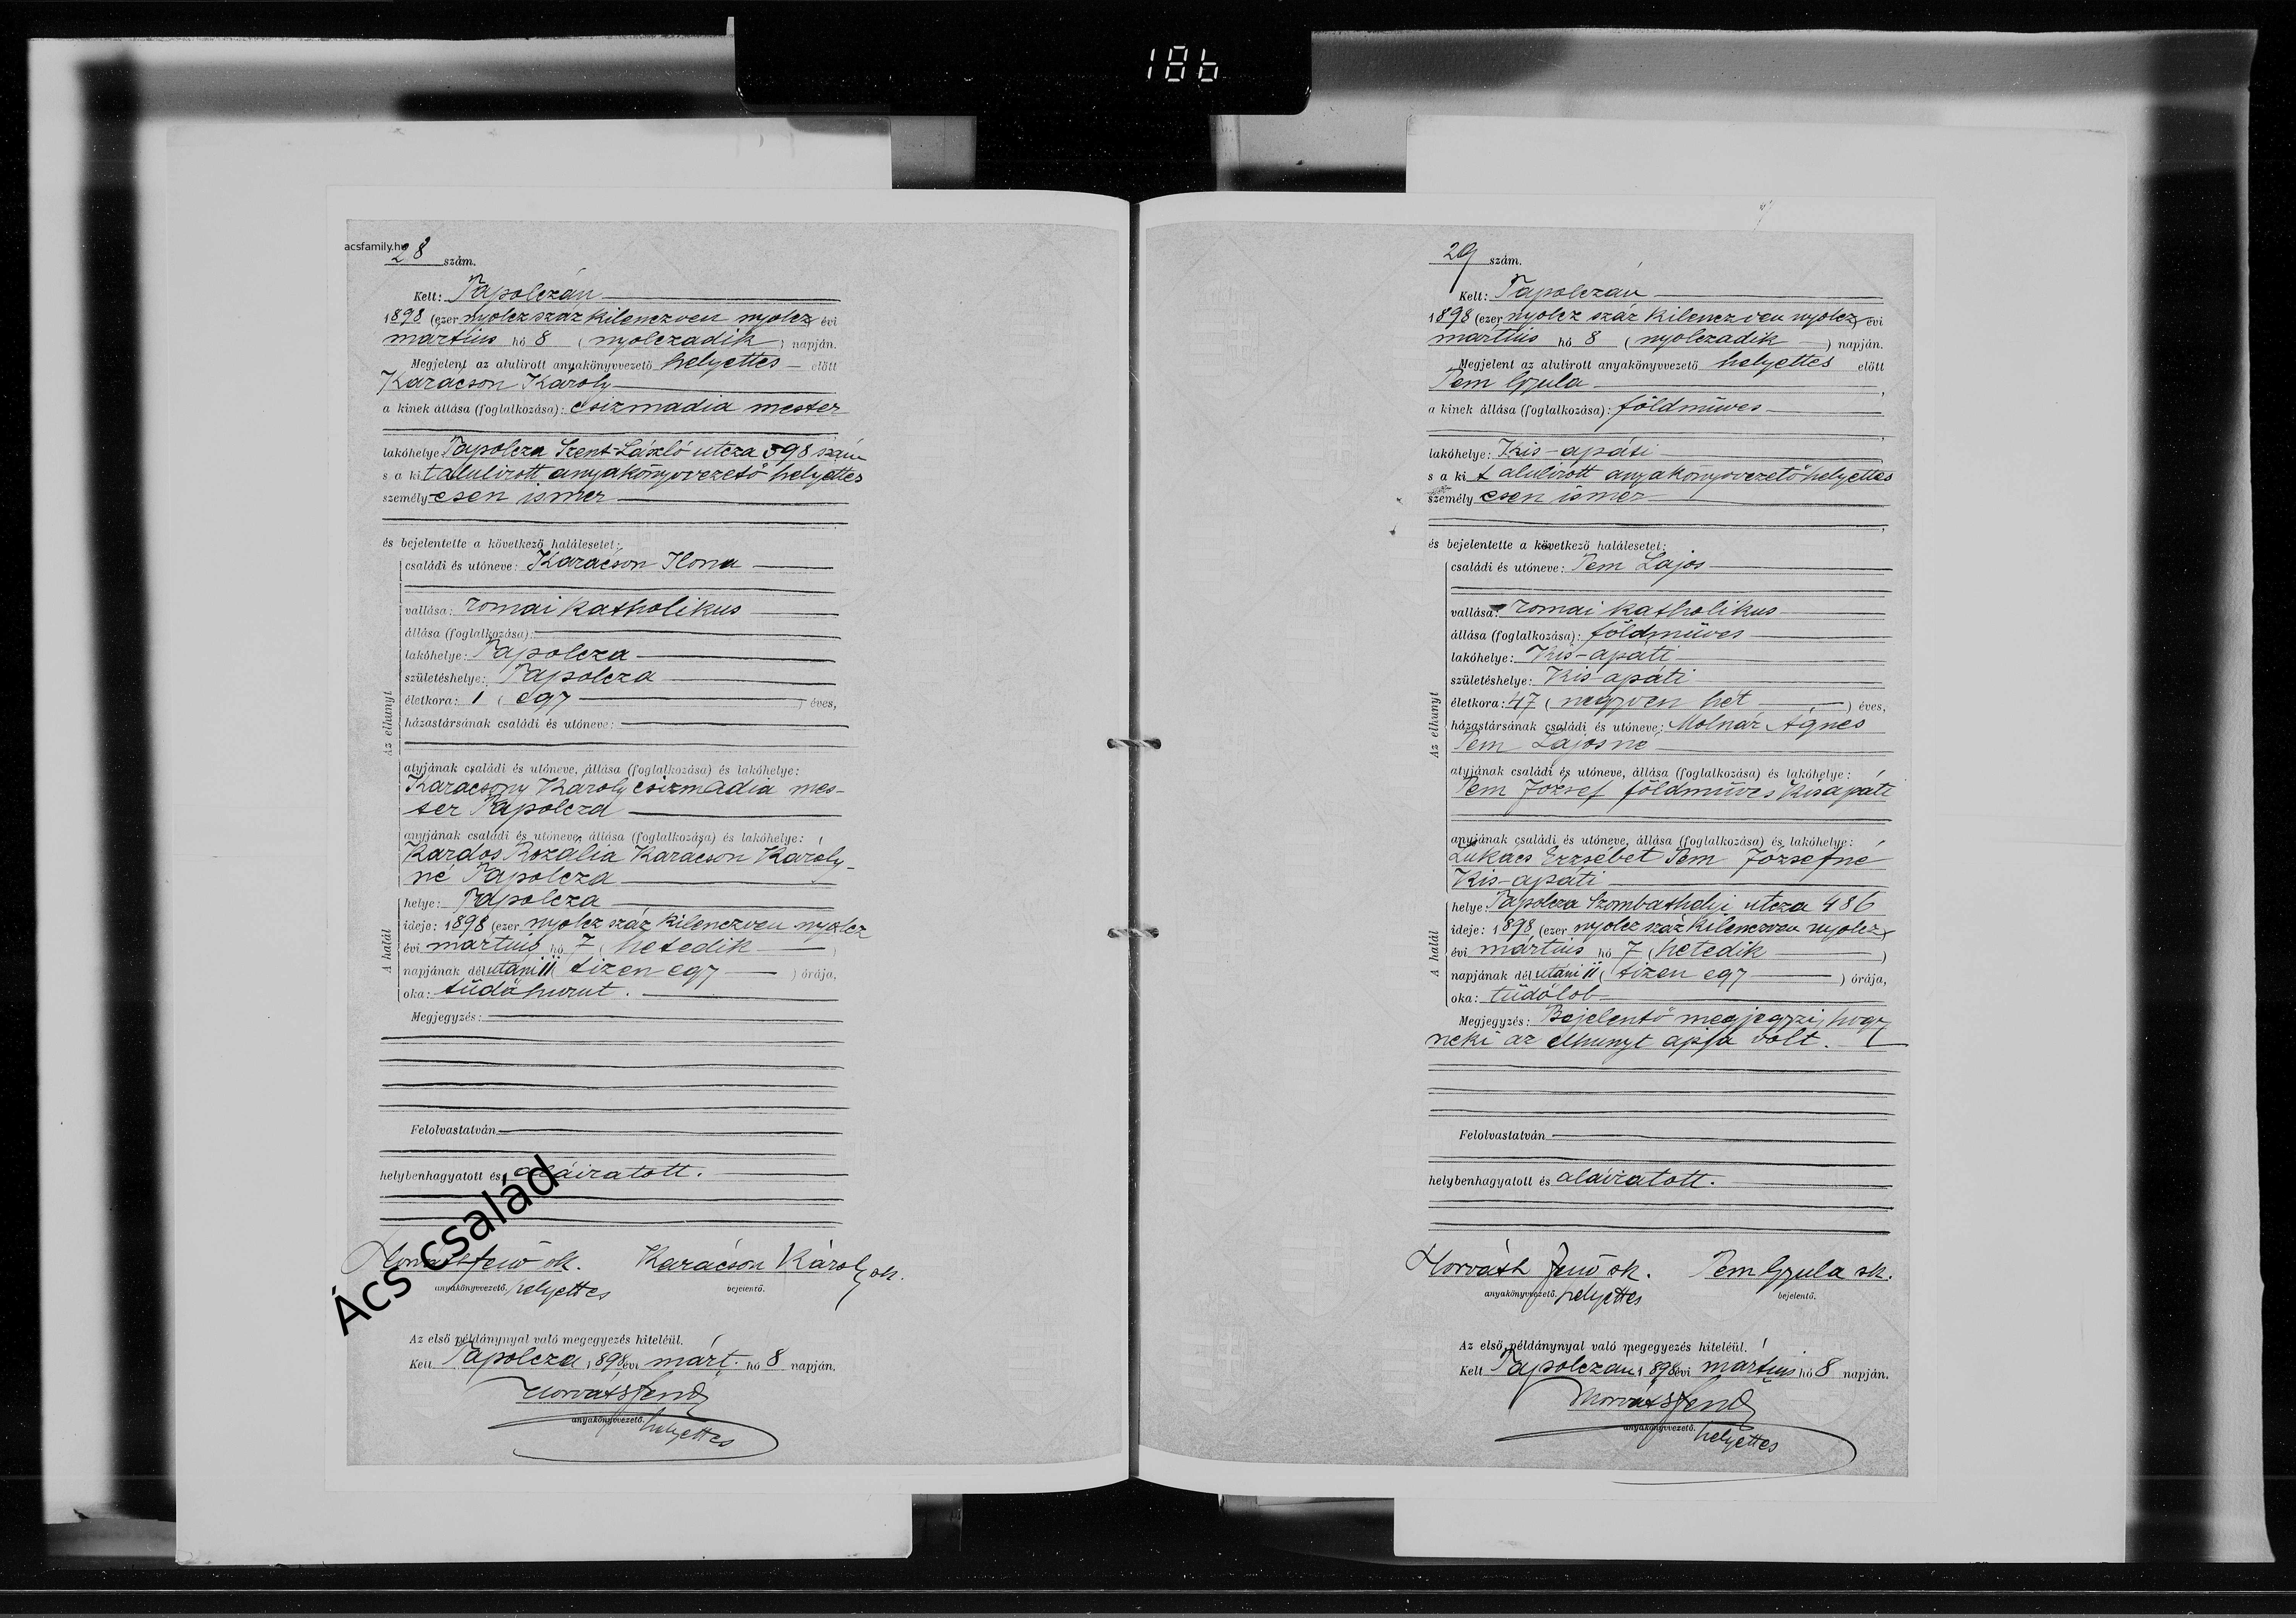 186
acsfamily.hu
28 szám.
Kelt: Tapolczán
1898 (ezer nyolcz száz kilenczven nyolcz) évi
martius hó 8 (nyolczadik) napján.
Megjelent az alulirott anyakönyvvezető helyettes előtt
Karácson Károly
a kinek állása (foglalkozása): csizmadia mester
lakóhelye Tapolcza Szent-László utcza 598 szám
s a kit alulirott anyakönyvvezető helyettes
személyesen ismer
és bejelentette a következő halálesetet:
Az elhunyt
családi és utóneve: Karácson Ilona
vallása: romai katholikus
állása (foglalkozása):
lakóhelye: Tapolcza
születéshelye: Tapolcza
életkora: 1 (egy) éves,
házastársának családi és utóneve:
atyjának családi és utóneve, állása (foglalkozása) és lakóhelye:
Karácsony Károly csizmadia mes-
ter Tapolcza
anyjának családi és utóneve, állása (foglalkozása) és lakóhelye:
Kardos Rozália Karácson Károly-
né Tapolcza
A halál
helye: Tapolcza
ideje: 1898 (ezer nyolcz száz kilenczven nyolcz
évi martius hó 7 (hetedik)
napjának délutáni 11 (tizen egy) órája,
oka: tüdőhurut.
Megjegyzés:
Felolvastatván
helybenhagyatott és aláiratott.
Horváth Jenő sk. Karácson Károly sk.
anyakönyvvezető. helyettes bejelentő.
Ács család
Az első példánynyal való megegyezés hiteléül.
Kelt Tapolcza 1898 évi márt. hó 8 napján.
Horváth Jenő
anyakönyvvezető. helyettes
29 szám.
Kelt: Tapolczán
1898 (ezer nyolcz száz kilenczven nyolcz) évi
martius hó 8 (nyolczadik) napján.
Megjelent az alulirott anyakönyvvezető helyettes előtt
Pem Gyula
a kinek állása (foglalkozása): földműves
lakóhelye: Kis-apáti
s a kit alulirott anyakönyvvezető helyettes
személyesen ismer
és bejelentette a következő halálesetet:
Az elhunyt
családi és utóneve: Pem Lajos
vallása: romai katholikus
állása (foglalkozása): földműves
lakóhelye: Kis-apáti
születéshelye: Kis-apáti
életkora: 47 (negyven hét) éves,
házastársának családi és utóneve: Molnár Ágnes
Pem Lajosné
atyjának családi és utóneve, állása (foglalkozása) és lakóhelye:
Pem József földműves Kisapáti
anyjának családi és utóneve, állása (foglalkozása) és lakóhelye:
Lukács Erzsébet Pem Józsefné
Kis-apáti
A halál
helye: Tapolcza Szombathelyi utcza 486
ideje: 1898 (ezer nyolcz száz kilenczven nyolcz)
évi mártius hó 7 (hetedik)
napjának délutáni 11 (tizen egy) órája,
oka: tüdőlob
Megjegyzés: Bejelentő megjegyzi, hogy
neki az elhunyt apja volt.
Felolvastatván
helybenhagyatott és aláiratott.
Horváth Jenő sk. Pem Gyula sk.
anyakönyvvezető. helyettes bejelentő.
Az első példánynyal való megegyezés hiteléül.
Kelt Tapolczán 1898 évi martius hó 8 napján.
Horváth Jenő
anyakönyvvezető. helyettes